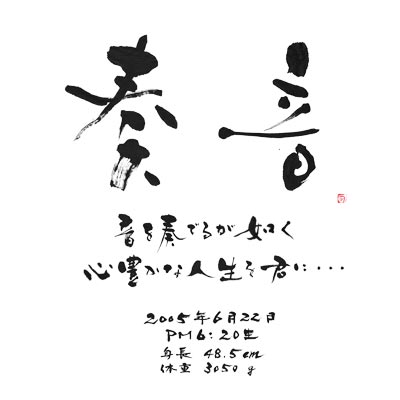 奏音
音を奏でるが如く
心豊かな人生を君に・・・
2005年6月22日
PM6:20生
身長 48.5cm
体重 3050g